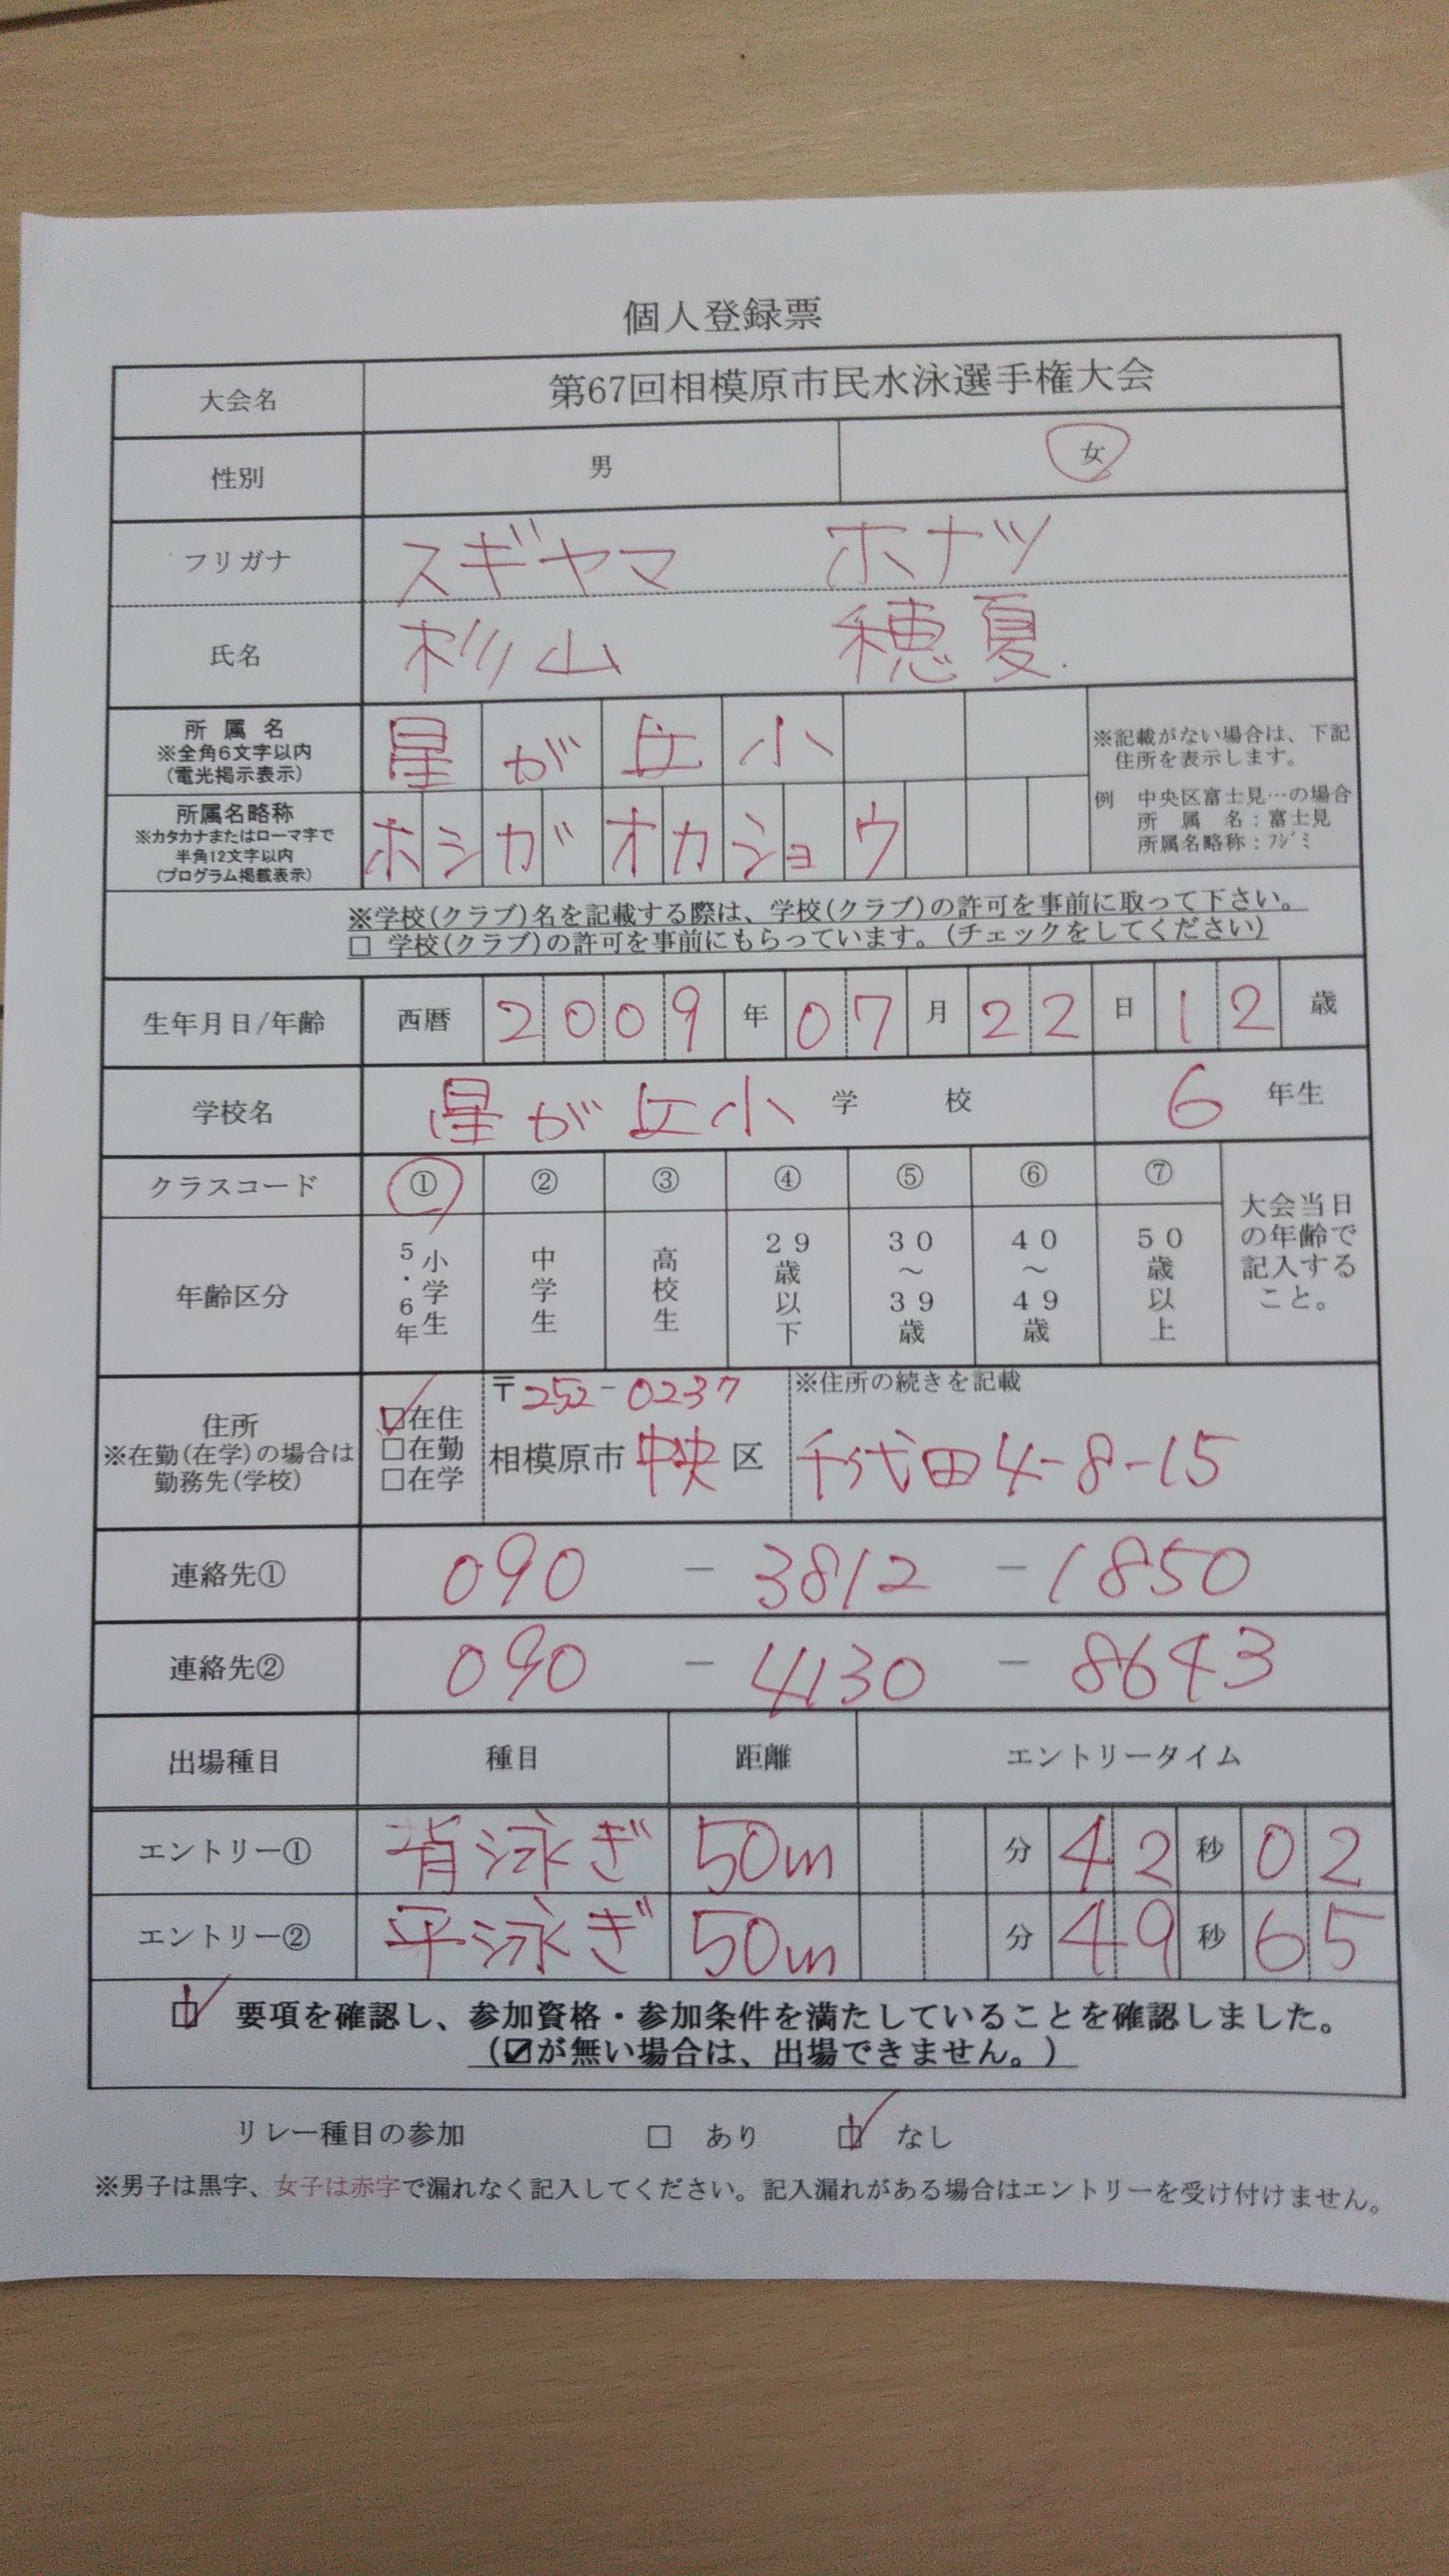 個人登録票
大会名 第67回相模原市民水泳選手権大会
性別 男 女
フリガナ スギヤマ ホナツ
氏名 杉山 穂夏
所属名 ※全角6文字以内 (電光掲示表示) 星が丘小
※記載がない場合は、下記住所を表示します。
所属名略称 ※カタカナまたはローマ字で半角12文字以内 (プログラム掲載表示) ホシガオカショウ
例 中央区富士見…の場合
所属名:富士見
所属名略称:フジミ
※学校(クラブ)名を記載する際は、学校(クラブ)の許可を事前に取って下さい。
□ 学校(クラブ)の許可を事前にもらっています。(チェックをしてください)
生年月日/年齢 西暦 2009 年 07 月 22 日 12 歳
学校名 星が丘小 学校 6 年生
クラスコード ① ② ③ ④ ⑤ ⑥ ⑦
年齢区分 小学生5・6年 中学生 高校生 29歳以下 30～39歳 40～49歳 50歳以上
大会当日の年齢で記入すること。
住所 ※在勤(在学)の場合は勤務先(学校)
☑在住
□在勤
□在学
〒252-0237
相模原市 中央 区
※住所の続きを記載
千代田4-8-15
連絡先① 090 - 3812 - 1850
連絡先② 090 - 4130 - 8643
出場種目 種目 距離 エントリータイム
エントリー① 背泳ぎ 50m 分 42 秒 02
エントリー② 平泳ぎ 50m 分 49 秒 65
☑ 要項を確認し、参加資格・参加条件を満たしていることを確認しました。
(☑が無い場合は、出場できません。)
リレー種目の参加 □ あり ☑ なし
※男子は黒字、女子は赤字で漏れなく記入してください。記入漏れがある場合はエントリーを受け付けません。